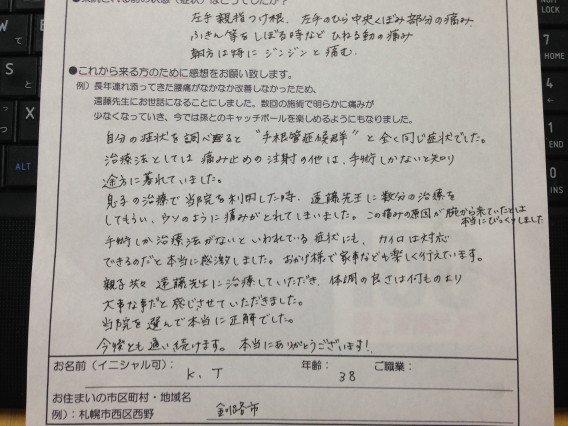 ●来院される前の状態（症状）はどうでしたか？
左手親指つけ根、左手のひら中央くぼみ部分の痛み
ふきん等をしぼる時などひねる動の痛み
朝方は特にジンジンと痛む。
●これから来る方のために感想をお願い致します。
例）長年連れ添ってきた腰痛がなかなか改善しなかったため、
遠藤先生にお世話になることにしました。数回の施術で明らかに痛みが
少なくなっていき、今では孫とのキャッチボールを楽しめるようにもなりました。
自分の症状を調べ着ると“手根管症候群”と全く同じ症状でした。
治療法としては痛み止めの注射の他は、手術しかないと知り
途方に暮れていました。
息子の治療で当院を利用した時、遠藤先生に数分の治療を
してもらい、ウソのように痛みがとれてしまいました。この痛みの原因が腕から来ていたとは
本当にびっくりしました
手術しか治療法がないといわれている症状にも、カイロは対応
できるのだと本当に感激しました。おかげ様で家事なども楽しく行えています。
親子共々遠藤先生に治療していただき、体調の良さは何ものより
大事な事だと感じさせていただきました。
当院を選んで本当に正解でした。
今後とも通い続けます。本当にありがとうございます！
お名前（イニシャル可）： K.T 年齢： 38 ご職業：
お住まいの市区町村・地域名
例）：札幌市西区西野 釧路市
ALT